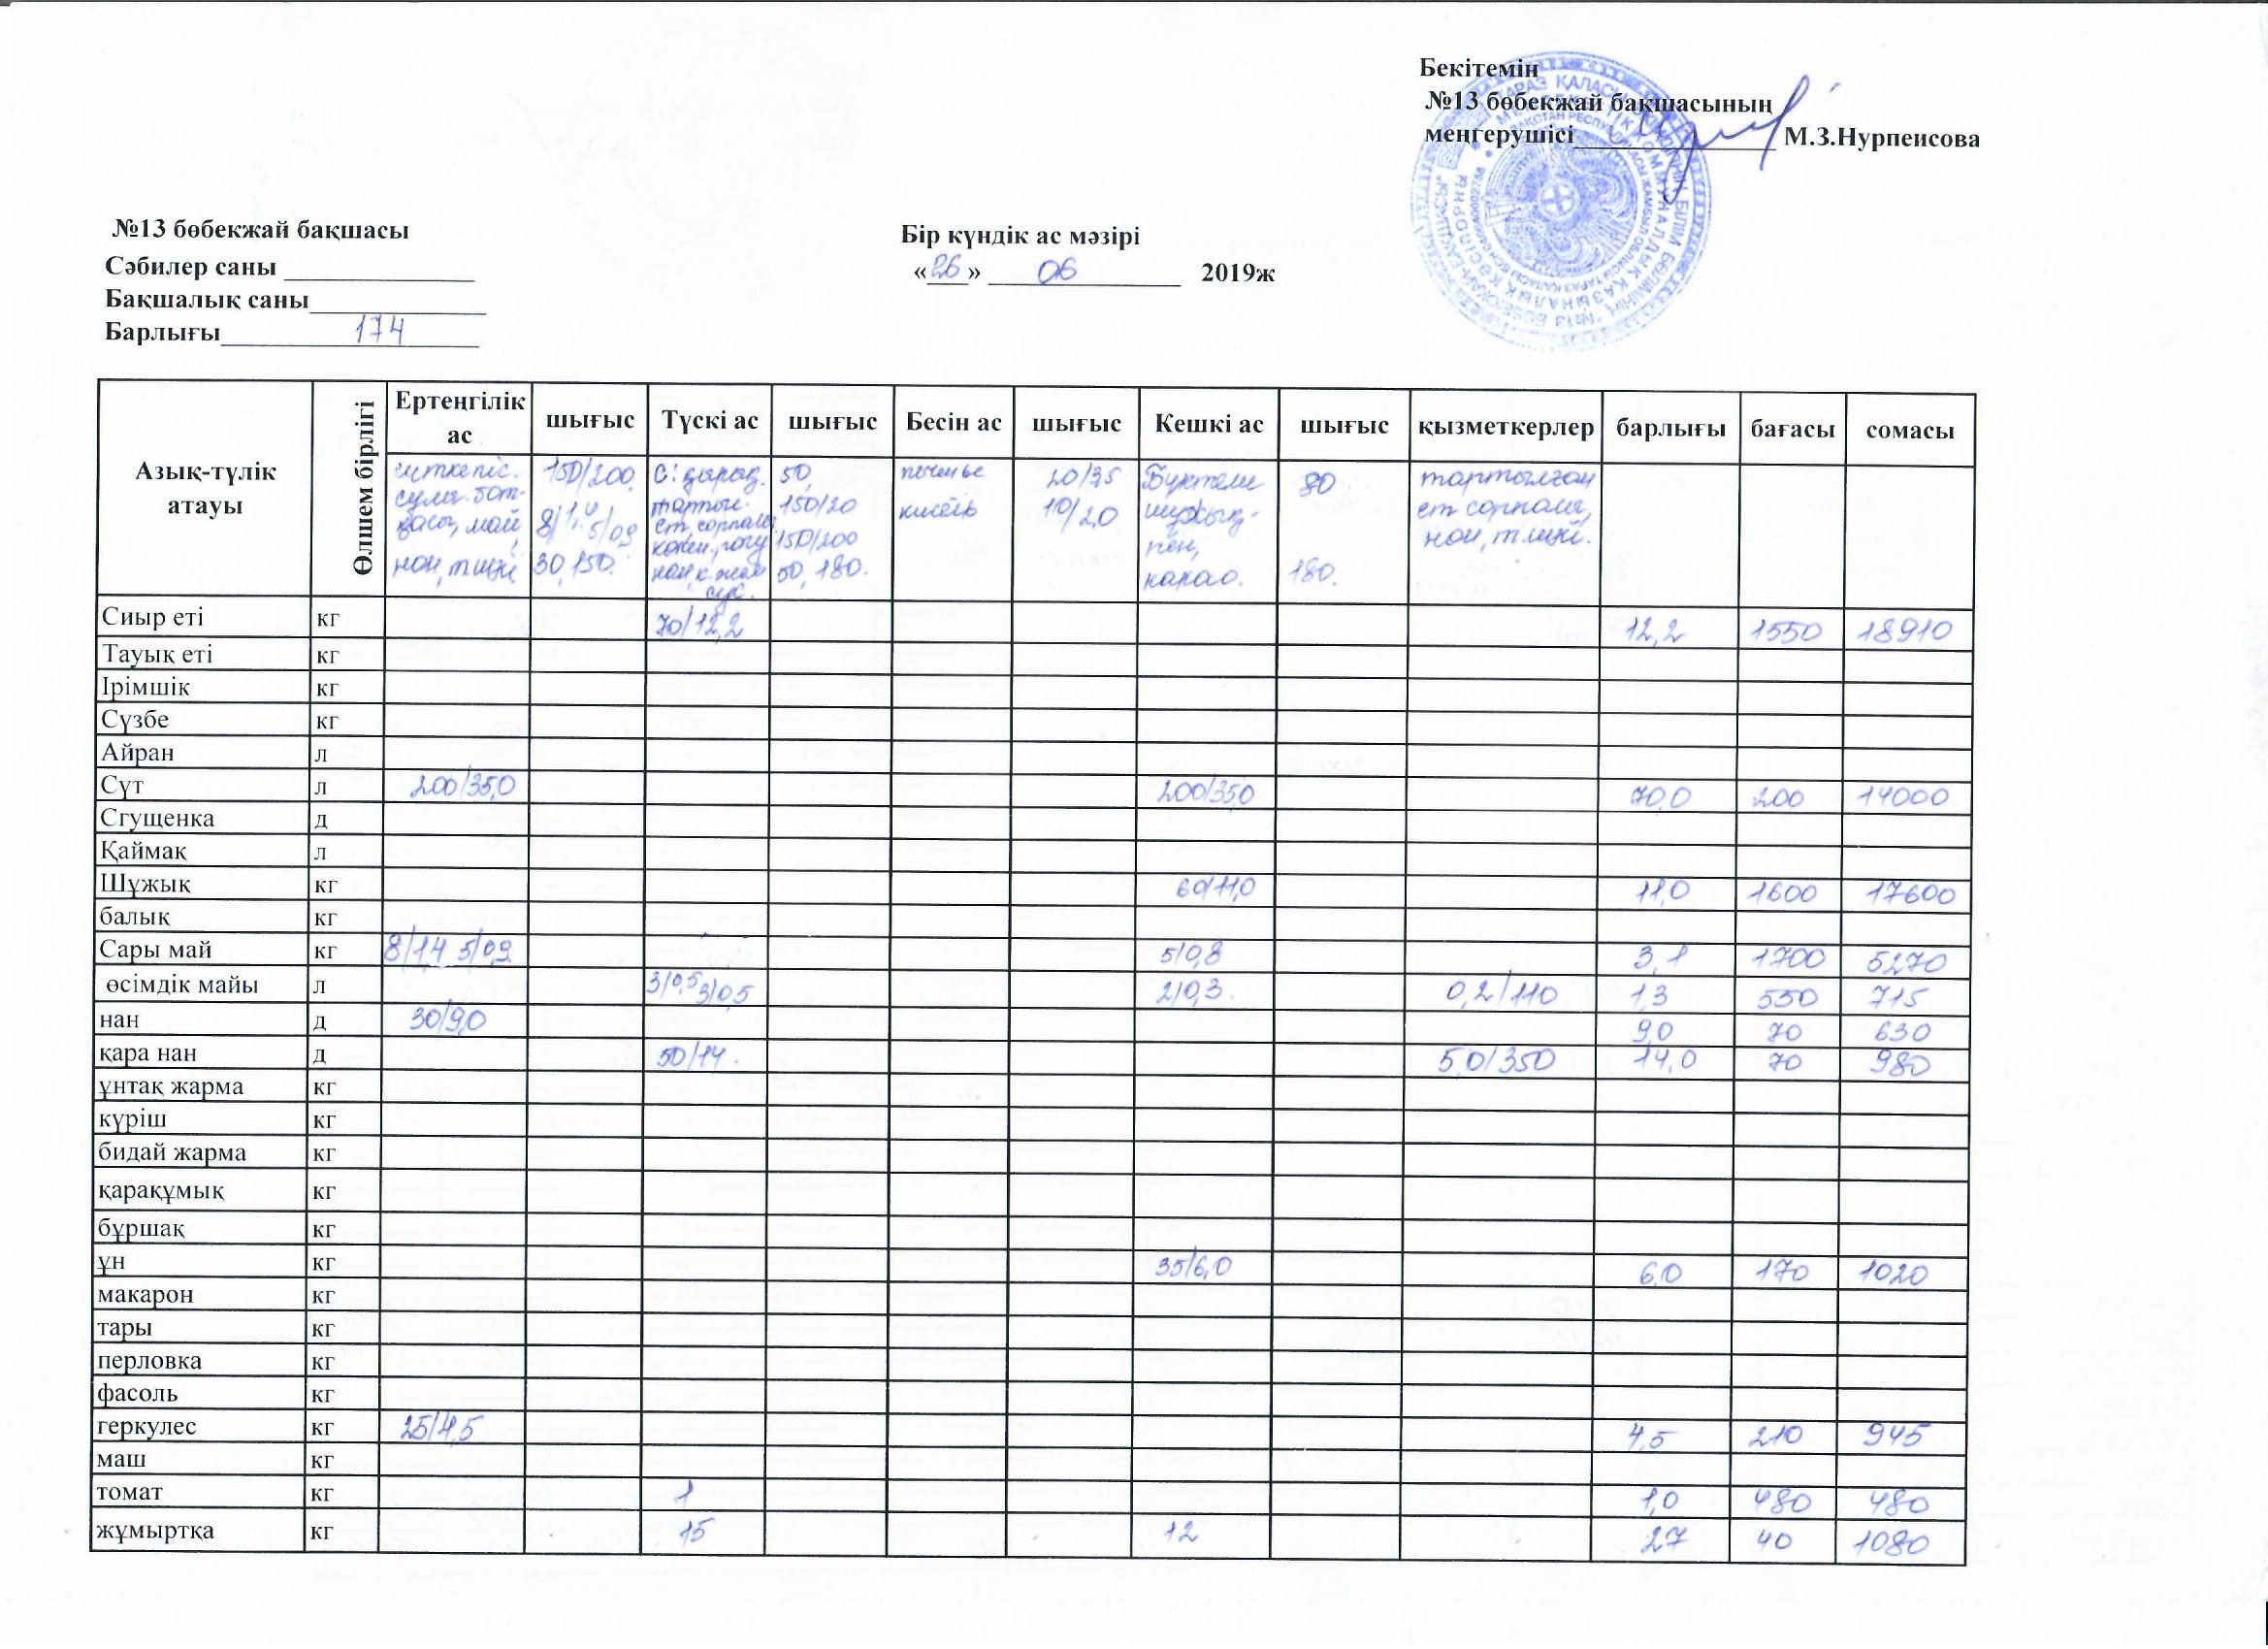 Бекітемін
№13 бөбекжай бақшасының
меңгерушісі______________ М.З.Нурпеисова
№13 бөбекжай бақшасы
Бір күндік ас мәзірі
Сәбилер саны ______________
«26» 06 2019ж
Бақшалық саны_____________
Барлығы 174
Азық-түлік атауы Өлшем бірлігі Ертеңгілік ас шығыс Түскі ас шығыс Бесін ас шығыс Кешкі ас шығыс қызметкерлер барлығы бағасы сомасы
май, нон, 150/200 8/1,4 5/0,9 30, 150. 50, 150/20 150/200 50, 180. печенье кисель 20/35 10/2,0 какао. 80 180. тартылған ет сорпасы,
Сиыр еті кг 70/12,2 12,2 1550 18910
Тауық еті кг
Ірімшік кг
Сүзбе кг
Айран л
Сүт л 200/35,0 200/35,0 70,0 200 14000
Сгущенка д
Қаймақ л
Шұжық кг 60/11,0 11,0 1600 17600
балық кг
Сары май кг 8/1,4 5/0,9 5/0,8 3,1 1700 5270
өсімдік майы л 3/0,5 3/0,5 2/0,3. 0,2/110 1,3 550 715
нан д 30/9,0 9,0 70 630
қара нан д 50/14. 5,0/350 14,0 70 980
ұнтақ жарма кг
күріш кг
бидай жарма кг
қарақұмық кг
бұршақ кг
ұн кг 35/6,0 6,0 170 1020
макарон кг
тары кг
перловка кг
фасоль кг
геркулес кг 25/4,5 4,5 210 945
маш кг
томат кг 1 1,0 480 480
жұмыртқа кг 15 12 27 40 1080